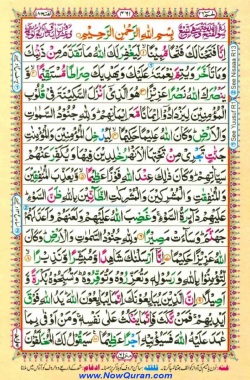 بِسْمِ اللّٰهِ الرَّحْمٰنِ الرَّحِيْمِ
اِنَّا فَتَحْنَا لَكَ فَتْحًا مُّبِيْنًا لِّيَغْفِرَ لَكَ اللّٰهُ مَا تَقَدَّمَ مِنْ ذَنْۢبِكَ
وَمَا تَاَخَّرَ وَيُتِمَّ نِعْمَتَهٗ عَلَيْكَ وَيَهْدِيَكَ صِرَاطًا مُّسْتَقِيْمًا وَّ
يَنْصُرَكَ اللّٰهُ نَصْرًا عَزِيْزًا هُوَ الَّذِيْۤ اَنْزَلَ السَّكِيْنَةَ فِيْ قُلُوْبِ
الْمُؤْمِنِيْنَ لِيَزْدَادُوْۤا اِيْمَانًا مَّعَ اِيْمَانِهِمْ وَلِلّٰهِ جُنُوْدُ السَّمٰوٰتِ
وَالْاَرْضِ وَكَانَ اللّٰهُ عَلِيْمًا حَكِيْمًا لِّيُدْخِلَ الْمُؤْمِنِيْنَ وَالْمُؤْمِنٰتِ
جَنّٰتٍ تَجْرِيْ مِنْ تَحْتِهَا الْاَنْهٰرُ خٰلِدِيْنَ فِيْهَا وَيُكَفِّرَ عَنْهُمْ
سَيِّاٰتِهِمْ وَكَانَ ذٰلِكَ عِنْدَ اللّٰهِ فَوْزًا عَظِيْمًا وَّيُعَذِّبَ الْمُنٰفِقِيْنَ
وَالْمُنٰفِقٰتِ وَالْمُشْرِكِيْنَ وَالْمُشْرِكٰتِ الظَّآنِّيْنَ بِاللّٰهِ ظَنَّ السَّوْءِ
عَلَيْهِمْ دَآئِرَةُ السَّوْءِ وَغَضِبَ اللّٰهُ عَلَيْهِمْ وَلَعَنَهُمْ وَاَعَدَّ لَهُمْ
جَهَنَّمَ وَسَآءَتْ مَصِيْرًا وَلِلّٰهِ جُنُوْدُ السَّمٰوٰتِ وَالْاَرْضِ وَكَانَ
اللّٰهُ عَزِيْزًا حَكِيْمًا اِنَّاۤ اَرْسَلْنٰكَ شَاهِدًا وَّمُبَشِّرًا وَّنَذِيْرًا
لِّتُؤْمِنُوْا بِاللّٰهِ وَرَسُوْلِهٖ وَتُعَزِّرُوْهُ وَتُوَقِّرُوْهُ وَتُسَبِّحُوْهُ بُكْرَةً وَّ
اَصِيْلًا اِنَّ الَّذِيْنَ يُبَايِعُوْنَكَ اِنَّمَا يُبَايِعُوْنَ اللّٰهَ يَدُ اللّٰهِ فَوْقَ
اَيْدِيْهِمْ فَمَنْ نَّكَثَ فَاِنَّمَا يَنْكُثُ عَلٰى نَفْسِهٖ وَمَنْ اَوْفٰى بِمَا
عٰهَدَ عَلَيْهُ اللّٰهَ فَسَيُؤْتِيْهِ اَجْرًا عَظِيْمًا سَيَقُوْلُ لَكَ
www.NowQuran.com